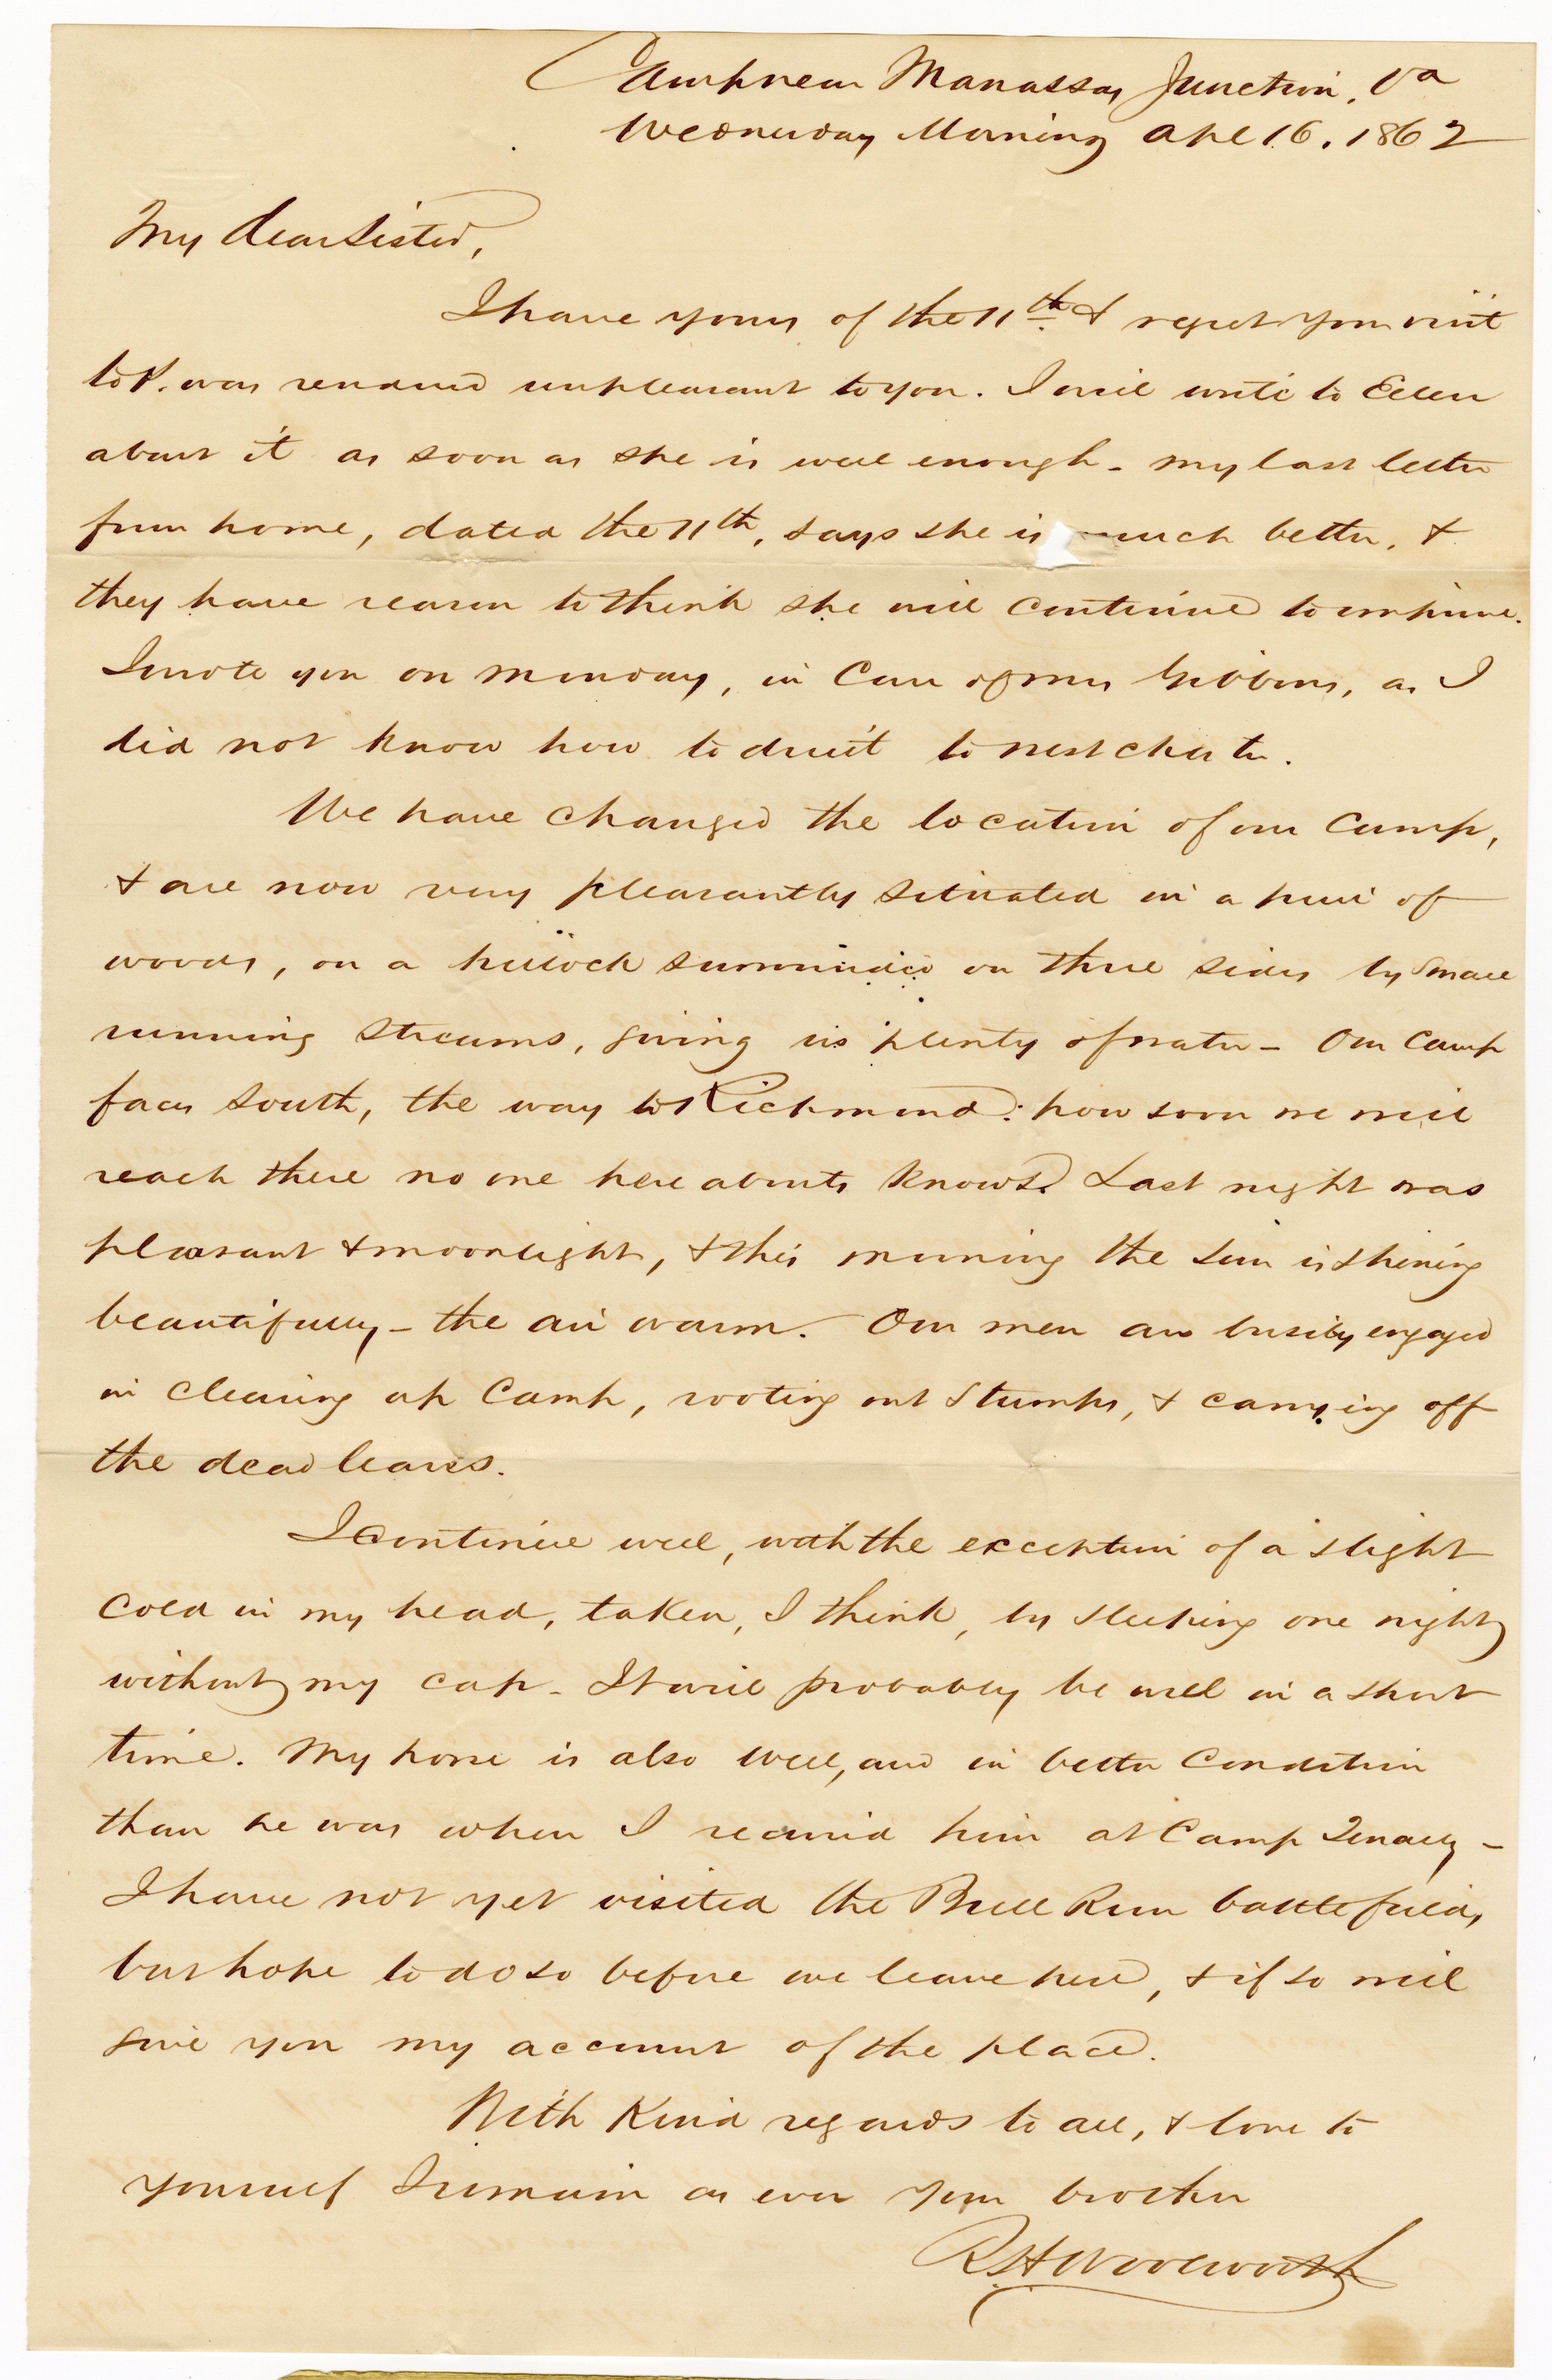 Camp near Manassas Junction, Va
Wednesday Morning Apl 16, 1862
My dear Sister,
I have yours of the 11th & regret your visit
to P. was rendered unpleasant to you. I will write to Ellen
about it as soon as she is well enough - my last letter
from home, dated the 11th, says she is much better, &
they have reason to think she will continue to improve.
I wrote you on Monday, in care of Mrs Gibbons, as I
did not know how to direct to West Chester.
We have changed the location of our camp,
& are now very pleasantly situated in a piece of
woods, on a hillock surrounded on three sides by small
running streams, giving us plenty of water - Our camp
faces South, the way to Richmond: how soon we will
reach there no one here abouts knows. Last night was
pleasant & moonlight, & this morning the sun is shining
beautifully - the air warm. Our men are busily engaged
in clearing up camp, rooting out stumps, & carrying off
the dead leaves.
I continue well, with the exception of a slight
cold in my head, taken, I think, by sleeping one night
without my cap - It will probably be well in a short
time. My horse is also well, and in better condition
than he was when I received him at Camp Tenally -
I have not yet visited the Bull Run battlefield,
but hope to do so before we leave here, & if so will
give you my account of the place.
With kind regards to all, & love to
yourself I remain as ever your brother
R H Woolworth